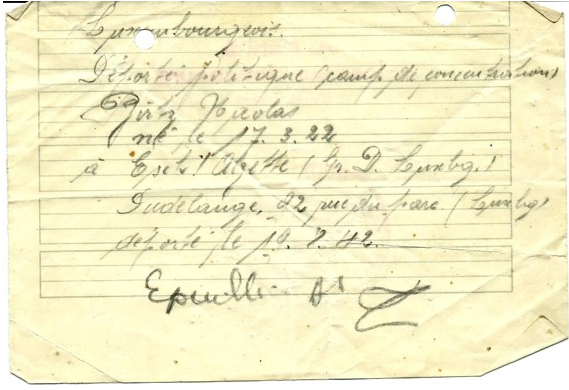 Luxembourgeois.
Déporté politique (camp de concentration)
Nicolas
né le 17.3.22
à Esch s/ Alzette (Gr. D. Luxbg.)
Dudelange, 22 rue du parc (Luxbg)
déporté le 19.7.42.